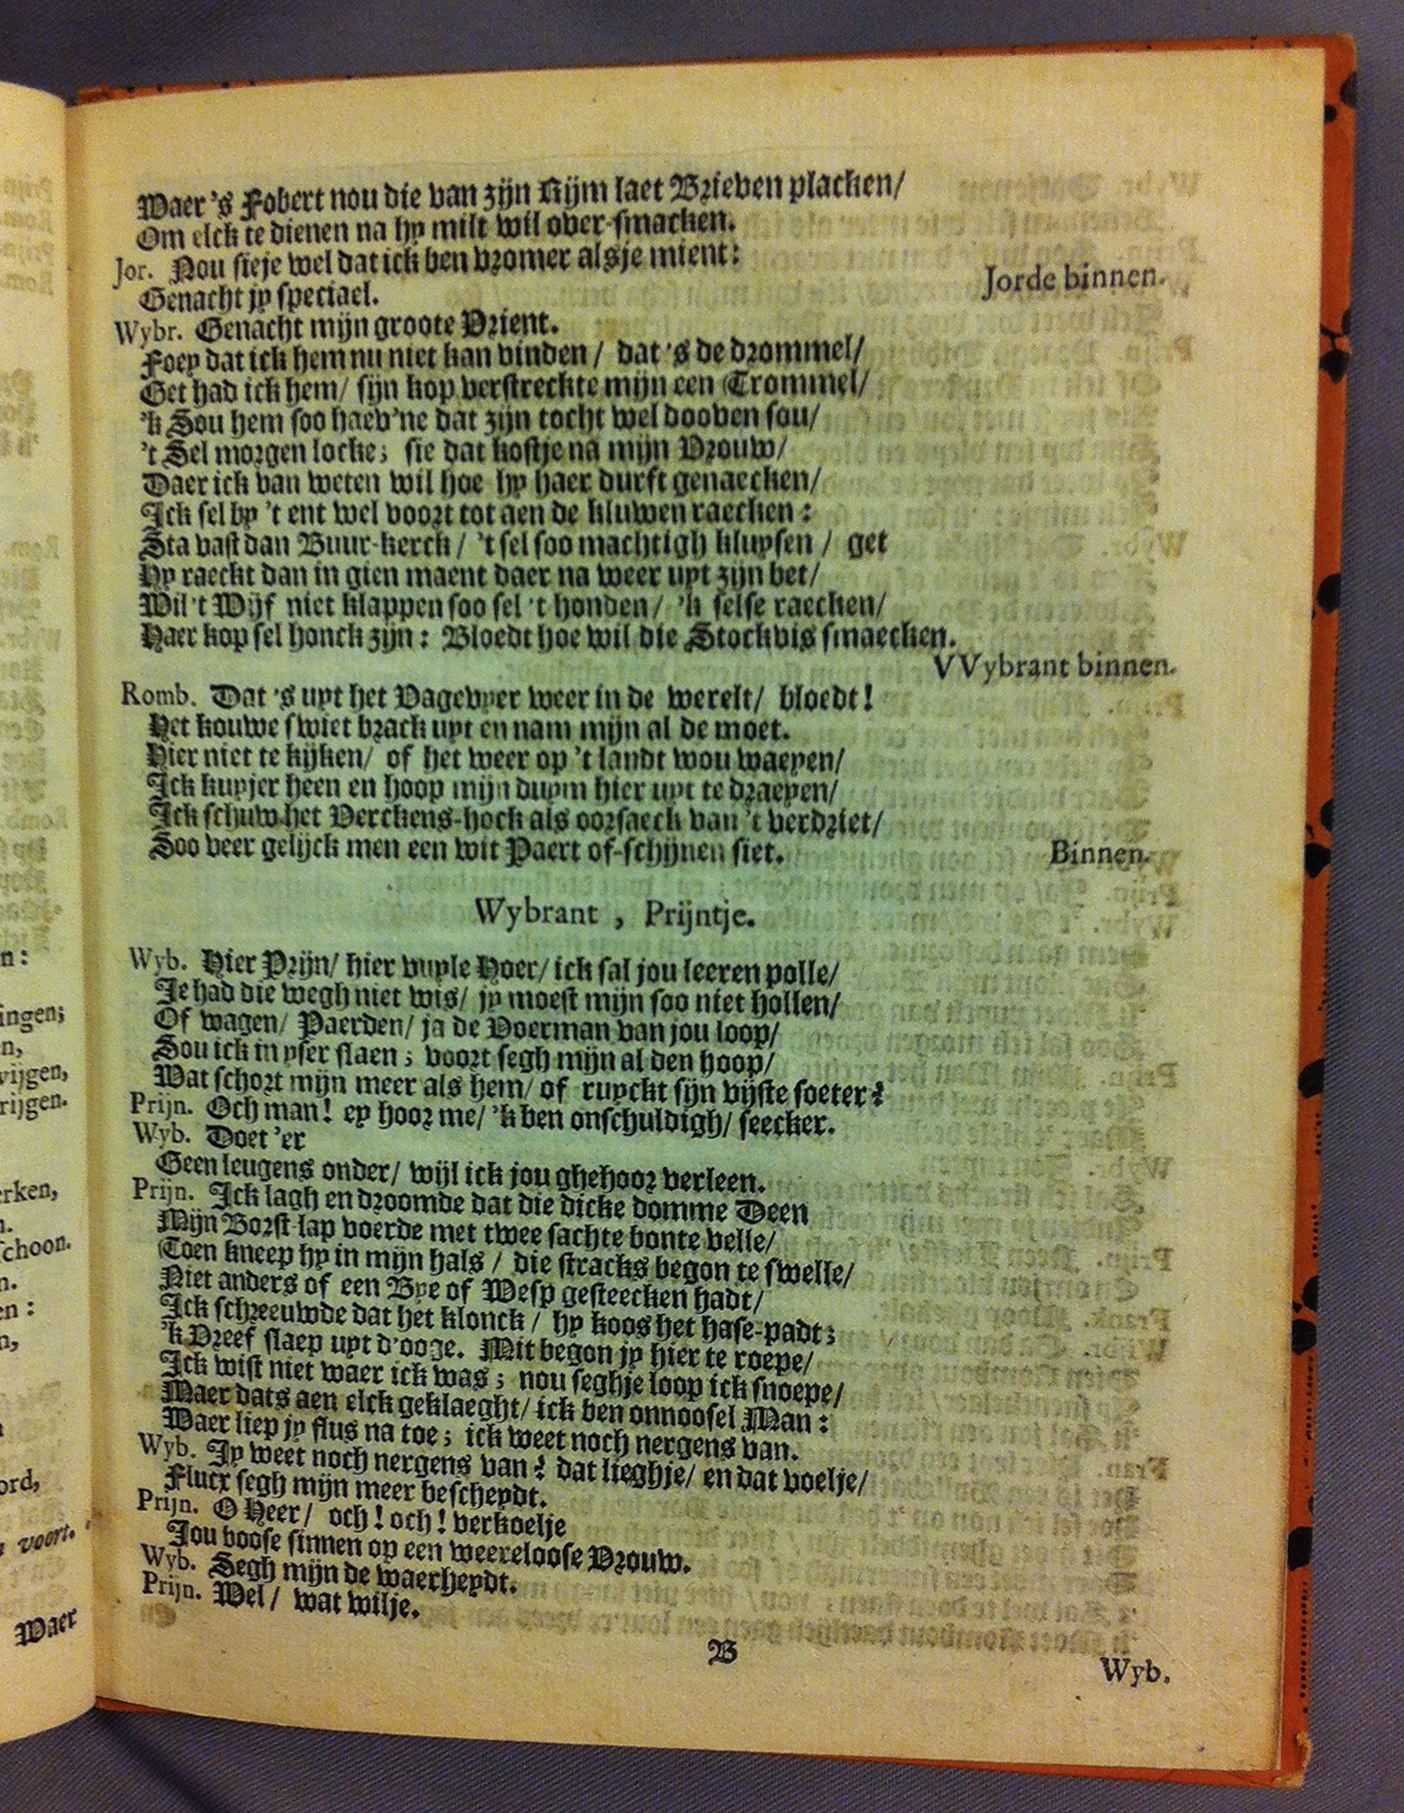 Waer 's Fobert nou die van zijn Rijm laet Brieven placken/
Om elck te dienen na hy milt wil over-smacken.
Jor. Nou sieje wel dat ick ben vromer als je mient:
Jorde binnen.
Genacht jy speciael.
Wybr. Genacht mijn groote Vrient.
Foey dat ick hem nu niet kan vinden / dat 's de drommel/
Get had ick hem/ sijn kop verstreckte mijn een Trommel/
'k Sou hem soo haev'ne dat zijn tocht wel dooven sou/
't Sel morgen locke; sie dat kostje na mijn Vrouw/
Daer ick van weten wil hoe hy haer durft genaecken/
Ick sel by 't ent wel voort tot aen de kluwen raecken:
Sta vast dan Buur-kerck / 't sel soo machtigh kluysen / get
Hy raeckt dan in gien maent daer na weer uyt zijn bet/
Wil 't Wijf niet klappen soo sel 't honden/ 'k selse raecken/
Haer kop sel honck zijn: Bloedt hoe wil die Stockvis smaecken.
VVybrant binnen.
Romb. Dat 's uyt het Vagevyer weer in de werelt/ bloedt!
Het kouwe swiet brack uyt en nam mijn al de moet.
Hier niet te kijken/ of het weer op 't landt wou waeyen/
Ick kuyjer heen en hoop mijn duym hier uyt te draeyen/
Ick schuw het Verckens-hock als oorsaeck van 't verdriet/
Soo veer gelijck men een wit Paert of-schijnen siet.
Binnen.
Wybrant , Prijntje.
Wyb. Hier Prijn/ hier vuyle Hoer/ ick sal jou leeren polle/
Je had die wegh niet wis/ jy moest mijn soo niet hollen/
Of wagen/ Paerden/ ja de Voerman van jou loop/
Sou ick in yser slaen; voort segh mijn al den hoop/
Wat schort mijn meer als hem/ of ruyckt sijn vijste soeter?
Prijn. Och man! ey hoor me/ 'k ben onschuldigh/ seecker.
Wyb. Doet 'er
Geen leugens onder/ wijl ick jou ghehoor verleen.
Prijn. Ick lagh en droomde dat die dicke domme Deen
Mijn Borst-lap voerde met twee sachte bonte velle/
Toen kneep hy in mijn hals / die stracks begon te swelle/
Niet anders of een Bye of Wesp gesteecken hadt/
Ick schreeuwde dat het klonck / hy koos het hase-padt;
'k Vreef slaep uyt d'ooge. Mit begon jy hier te roepe/
Ick wist niet waer ick was; nou seghje loop ick snoepe/
Maer dats aen elck geklaeght/ ick ben onnoosel Man:
Waer liep jy flus na toe; ick weet noch nergens van.
Wyb. Jy weet noch nergens van? dat lieghje/ en dat voelje/
Flucx segh mijn meer bescheydt.
Prijn. O Heer/ och! och! verkoelje
Jou boose sinnen op een weereloose Vrouw.
Wyb. Segh mijn de waerheydt.
Prijn. Wel/ wat wilje.
B
Wyb.